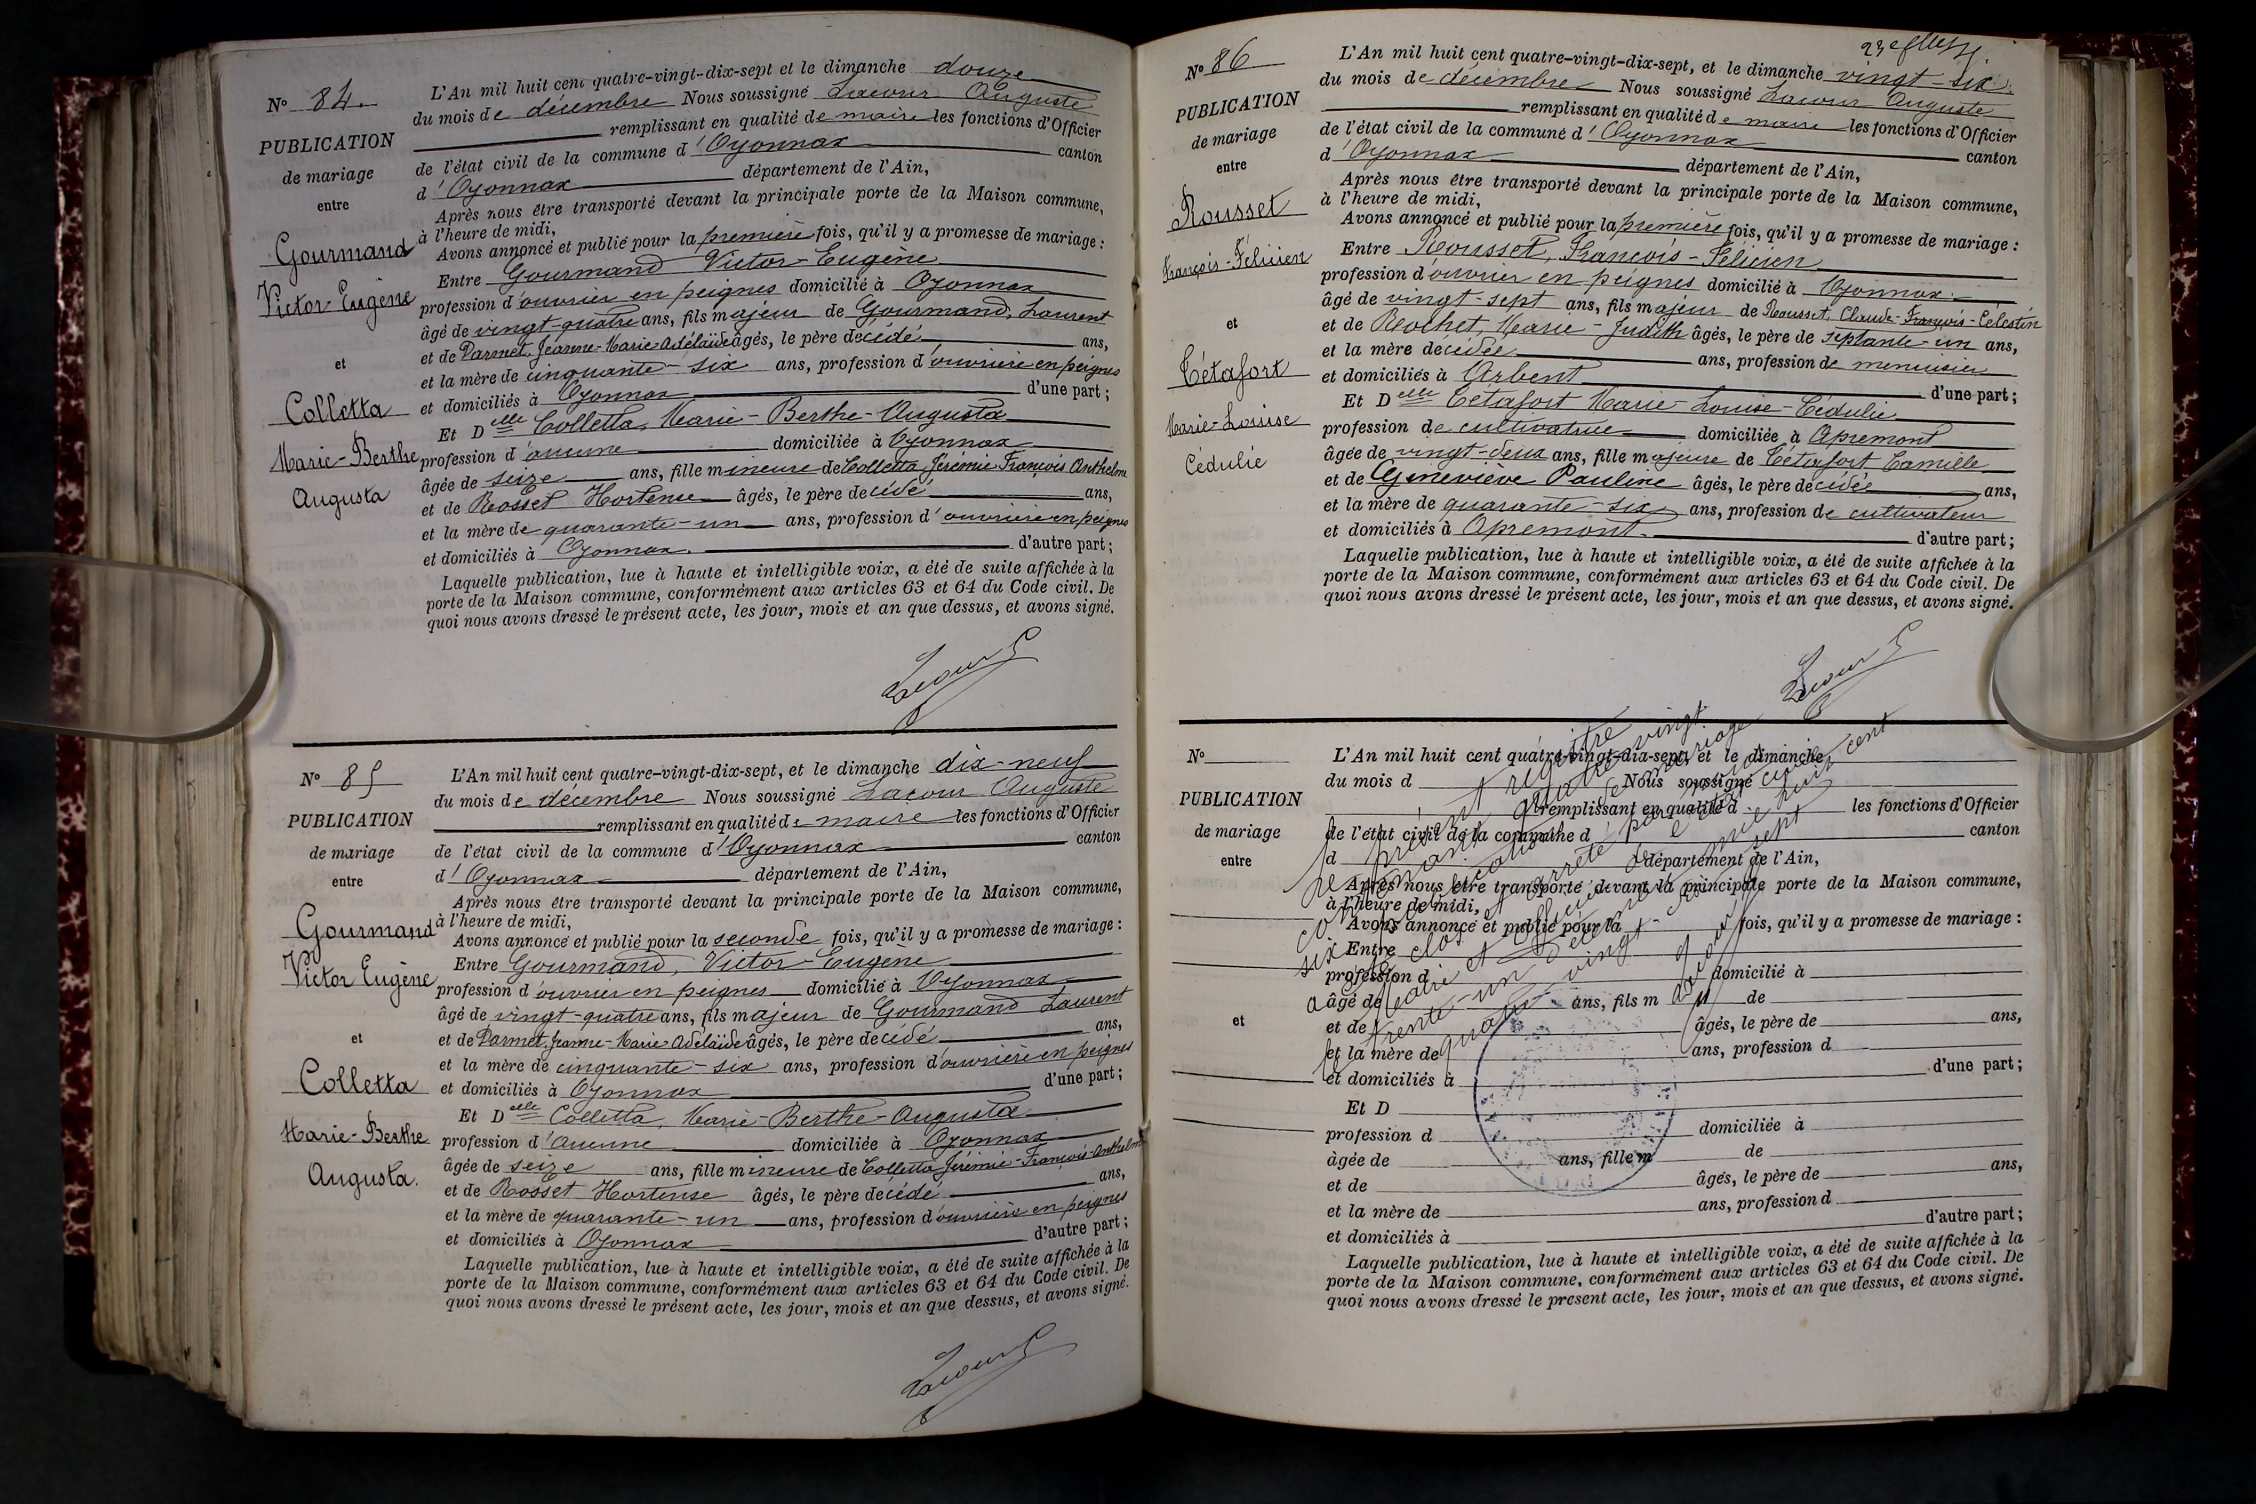 N° 84.
PUBLICATION
de mariage
entre
Gourmand
Victor Eugène
et
Colletta
Marie-Berthe
Augusta
L'An mil huit cent quatre-vingt-dix-sept et le dimanche douze
du mois de décembre Nous soussigné Lacour Auguste
remplissant en qualité de maire les fonctions d'Officier
de l'état civil de la commune d'Oyonnax canton
d'Oyonnax département de l'Ain,
Après nous être transporté devant la principale porte de la Maison commune,
à l'heure de midi,
Avons annoncé et publié pour la première fois, qu'il y a promesse de mariage :
Entre Gourmand Victor-Eugène
profession d'ouvrier en peignes domicilié à Oyonnax
âgé de vingt-quatre ans, fils majeur de Gourmand, Laurent
et de Darmet, Jeanne-Marie Adélaïde âgés, le père decédé ans,
et la mère de cinquante-six ans, profession d'ouvrière en peignes
et domiciliés à Oyonnax d'une part ;
Et Delle Colletta, Marie-Berthe-Augusta
profession d'aucune domiciliée à Oyonnax
âgée de seize ans, fille mineure de Colletta, Jérémie François Anthelme
et de Rosset Hortense âgés, le père decédé ans,
et la mère de quarante-un ans, profession d'ouvrière en peignes
et domiciliés à Oyonnax. d'autre part ;
Laquelle publication, lue à haute et intelligible voix, a été de suite affichée à la
porte de la Maison commune, conformément aux articles 63 et 64 du Code civil. De
quoi nous avons dressé le présent acte, les jour, mois et an que dessus, et avons signé.
Lacour
N° 85
PUBLICATION
de mariage
entre
Gourmand
Victor Eugène
et
Colletta
Marie-Berthe
Augusta.
L'An mil huit cent quatre-vingt-dix-sept, et le dimanche dix-neuf
du mois de décembre Nous soussigné Lacour Auguste
remplissant en qualité de maire les fonctions d'Officier
de l'état civil de la commune d'Oyonnax canton
d'Oyonnax département de l'Ain,
Après nous être transporté devant la principale porte de la Maison commune,
à l'heure de midi,
Avons annoncé et publié pour la seconde fois, qu'il y a promesse de mariage :
Entre Gourmand, Victor-Eugène
profession d'ouvrier en peignes domicilié à Oyonnax
âgé de vingt-quatre ans, fils majeur de Gourmand Laurent
et de Darmet, Jeanne-Marie Adélaïde âgés, le père decédé ans,
et la mère de cinquante-six ans, profession d'ouvrière en peignes
et domiciliés à Oyonnax d'une part ;
Et Delle Colletta, Marie-Berthe-Augusta
profession d'aucune domiciliée à Oyonnax
âgée de seize ans, fille mineure de Colletta Jérémie-François-Anthelme
et de Rosset Hortense âgés, le père decédé ans,
et la mère de quarante-un ans, profession d'ouvrière en peignes
et domiciliés à Oyonnax d'autre part ;
Laquelle publication, lue à haute et intelligible voix, a été de suite affichée à la
porte de la Maison commune, conformément aux articles 63 et 64 du Code civil. De
quoi nous avons dressé le présent acte, les jour, mois et an que dessus, et avons signé.
Lacour
N° 86
PUBLICATION
de mariage
entre
Rousset
François-Félicien
et
Tétafort
Marie-Louise
Cédulie
L'An mil huit cent quatre-vingt-dix-sept, et le dimanche vingt-six
du mois de décembre Nous soussigné Lacour Auguste
remplissant en qualité de maire les fonctions d'Officier
de l'état civil de la commune d'Oyonnax canton
d'Oyonnax département de l'Ain,
Après nous être transporté devant la principale porte de la Maison commune,
à l'heure de midi,
Avons annoncé et publié pour la première fois, qu'il y a promesse de mariage :
Entre Rousset, François-Félicien
profession d'ouvrier en peignes domicilié à Oyonnax
âgé de vingt-sept ans, fils majeur de Rousset, Claude-François-Célestin
et de Rochet, Marie-Judith âgés, le père de septante-un ans,
et la mère décédée ans, profession de menuisier
et domiciliés à Arbent d'une part ;
Et Delle Tétafort Marie-Louise-Cédulie
profession de cultivatrice domiciliée à Apremont
âgée de vingt-deux ans, fille majeure de Tétafort Camille
et de Geneviève Pauline âgés, le père decédé ans,
et la mère de quarante-six ans, profession de cultivateur
et domiciliés à Apremont. d'autre part ;
Laquelle publication, lue à haute et intelligible voix, a été de suite affichée à la
porte de la Maison commune, conformément aux articles 63 et 64 du Code civil. De
quoi nous avons dressé le présent acte, les jour, mois et an que dessus, et avons signé.
Lacour
N°
PUBLICATION
de mariage
entre
et
L'An mil huit cent quatre-vingt-dix-sept, et le dimanche
du mois d Nous soussigné
remplissant en qualité d les fonctions d'Officier
de l'état civil de la commune d canton
d département de l'Ain,
Après nous être transporté devant la principale porte de la Maison commune,
à l'heure de midi,
Avons annoncé et publié pour la fois, qu'il y a promesse de mariage :
Entre
profession d domicilié à
âgé de ans, fils m de
et de âgés, le père de ans,
et la mère de ans, profession d
et domiciliés à d'une part ;
Et D
profession d domiciliée à
âgée de ans, fille m de
et de âgés, le père de ans,
et la mère de ans, profession d
et domiciliés à d'autre part ;
Laquelle publication, lue à haute et intelligible voix, a été de suite affichée à la
porte de la Maison commune, conformément aux articles 63 et 64 du Code civil. De
quoi nous avons dressé le présent acte, les jour, mois et an que dessus, et avons signé.
Le présent registre
contenant quatre-vingt
six publications de mariage
a été clos et arrêté par nous
maire et officier de l'état civil le
trente-un décembre mil huit cent
quatre-vingt-dix-sept